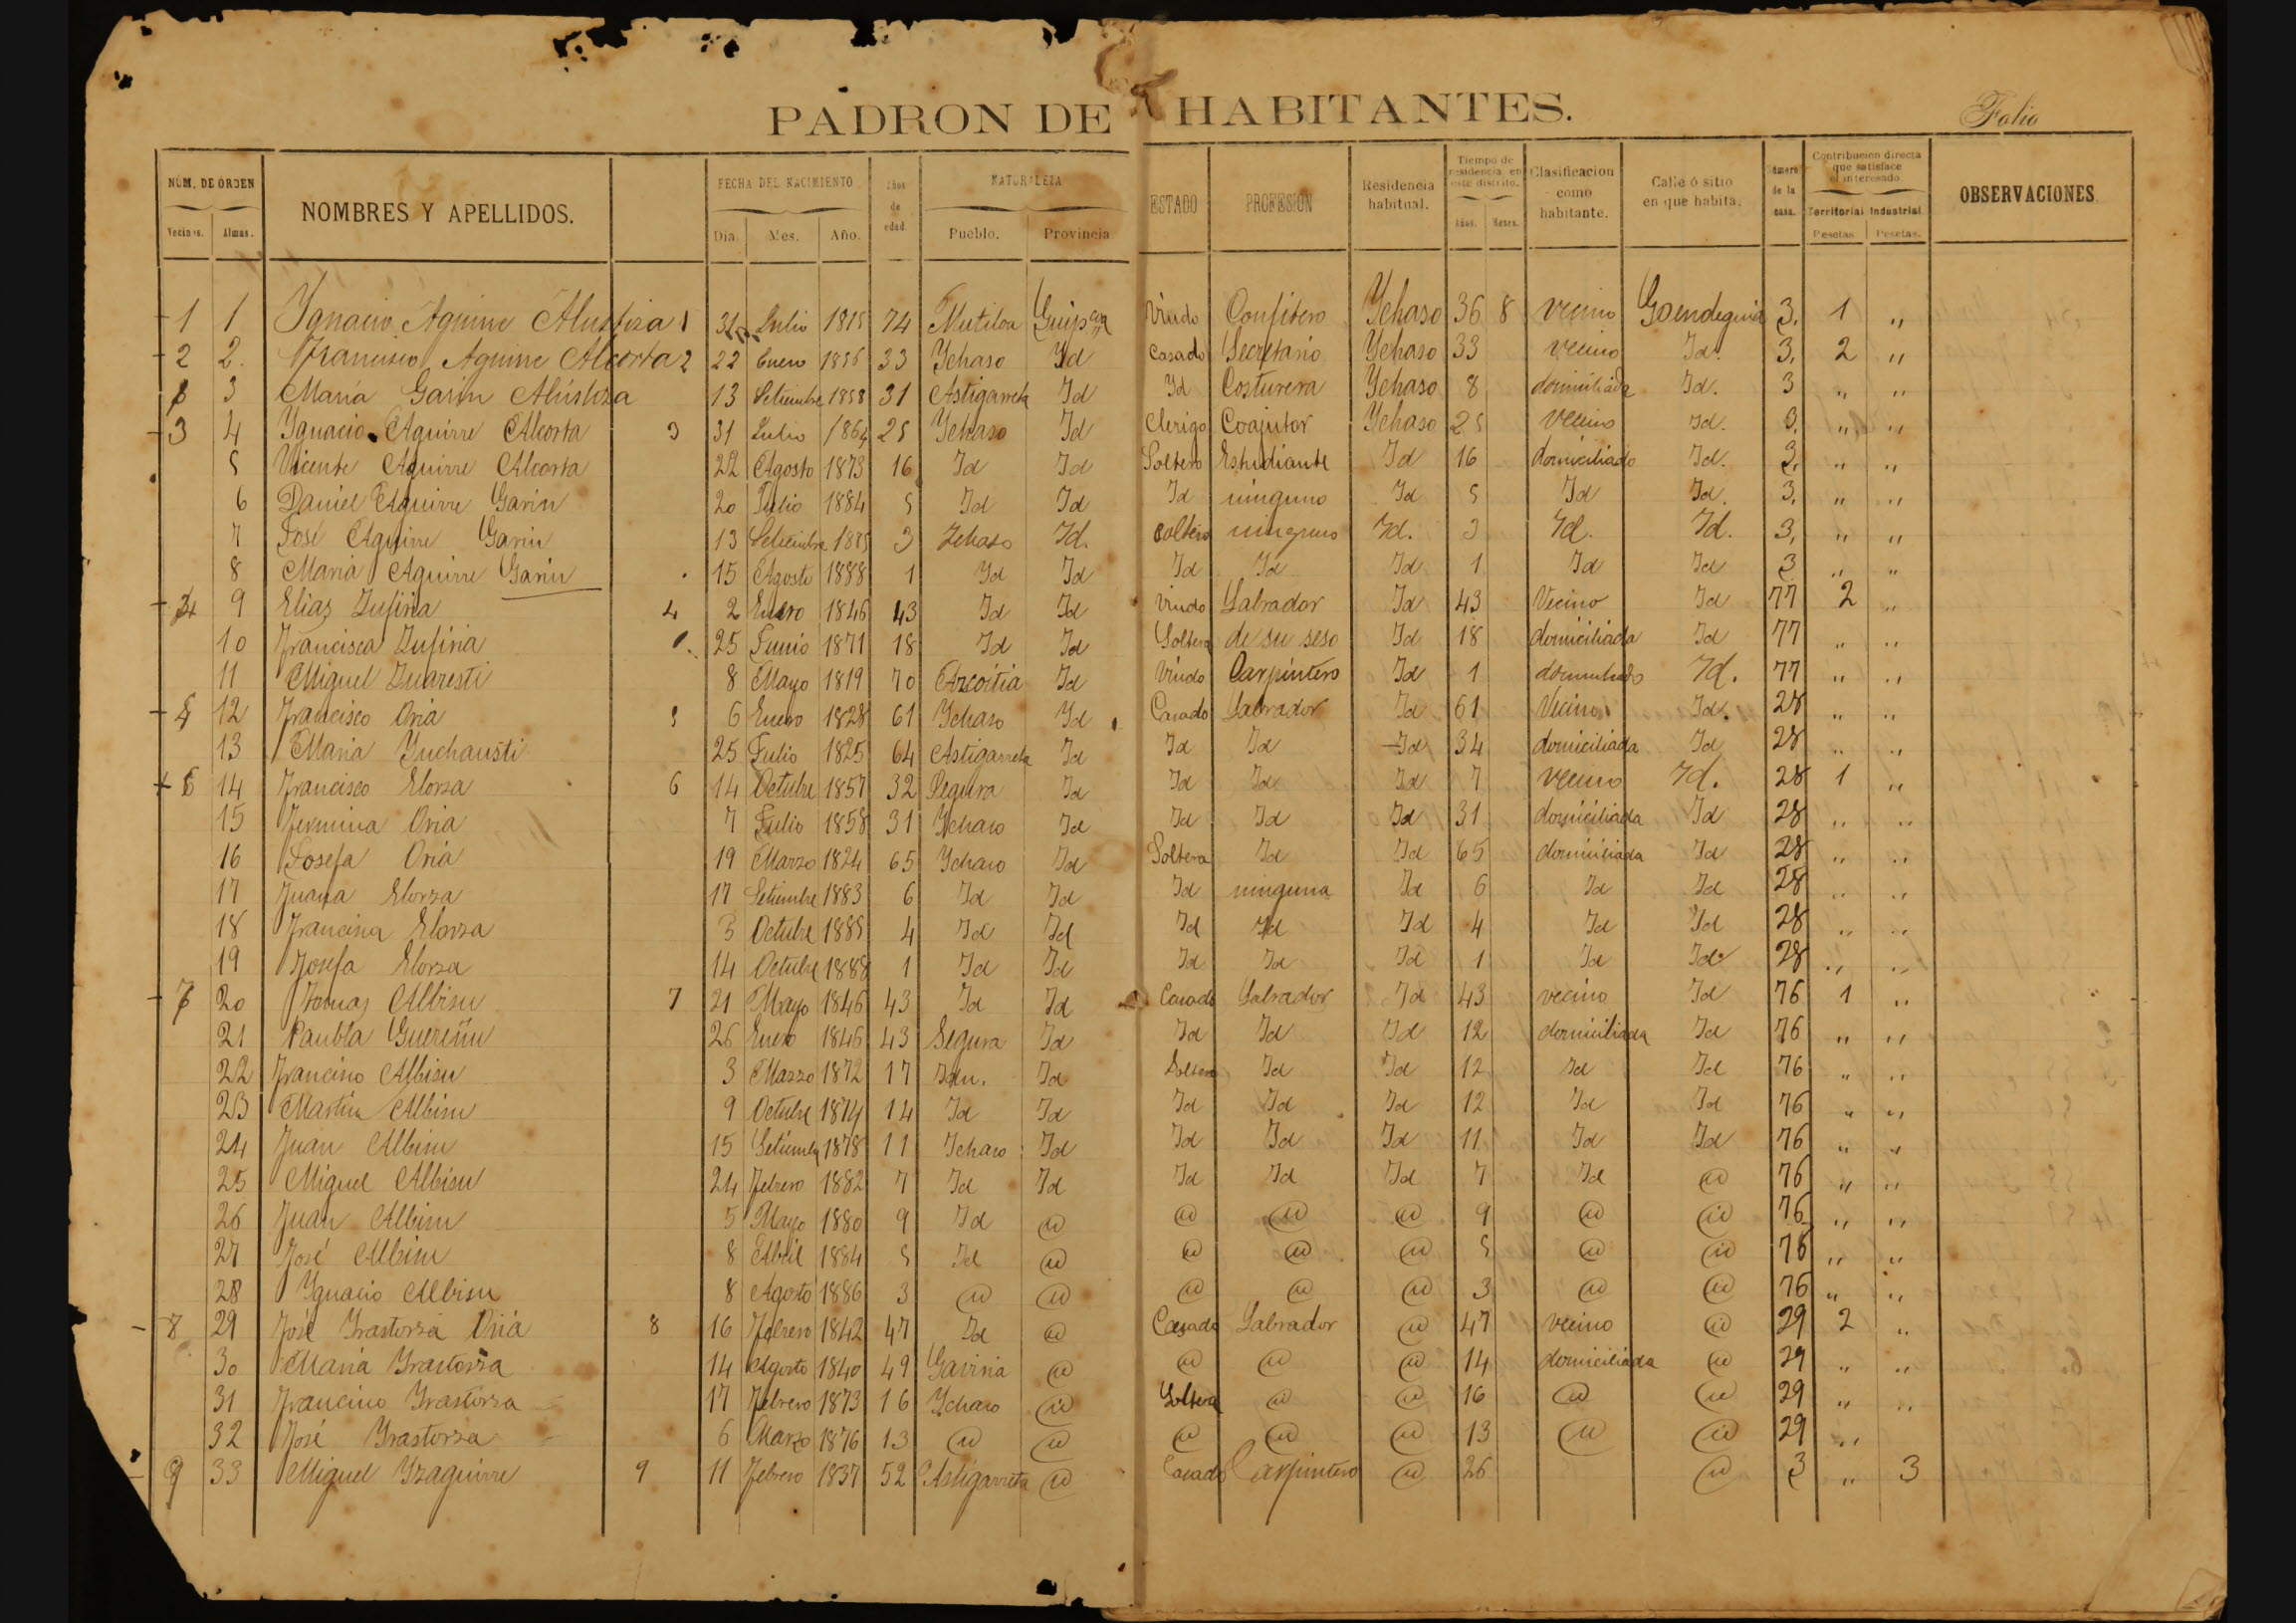 PADRON DE HABITANTES.
Folio
NÚM. DE ÓRDEN NOMBRES Y APELLIDOS. FECHA DEL NACIMIENTO Años de edad. NATURALEZA ESTADO PROFESION Residencia habitual. Tiempo de residencia en este distrito. Clasificacion como habitante. Calle ó sitio en que habita. Número de la casa. Contribucion directa que satisface el interesado. OBSERVACIONES
Vecinos. Almas. Dia. Mes. Año. Pueblo. Provincia Años. Meses. Territorial Industrial
Pesetas. Pesetas.
1 1 Ygnacio Aguirre Alustiza 1 31 Julio 1815 74 Mutiloa Guipcoa Viudo Confitero Ychaso 36 8 vecino Goendeguia 3. 1 "
2 2. Francisco Aguirre Alcorta 2 22 Enero 1856 33 Ychaso Yd Casado Secretario Ychaso 33 vecino Id. 3, 2 "
3 María Garin Alústiza 13 Setiembre 1858 31 Astigarreta Id Yd Costurera Ychaso 8 domiciliada Id. 3 " "
3 4 Ygnacio Aguirre Alcorta 3 31 Julio 1864 25 Ychaso Id Clerigo Coajutor Ychaso 25 vecino Id. 3, " "
5 Vicente Aguirre Alcorta 22 Agosto 1873 16 Id Id Soltero Estudiante Id 16 domiciliado Id. 3, " "
6 Daniel Aguirre Garin 20 Julio 1884 5 Id Id Id ninguno Id 5 Id Id. 3, " "
7 José Aguirre Garin 13 Setiembre 1885 3 Ichaso Id. Soltero ninguno Id. 3 Id. Id. 3, " "
8 Maria Aguirre Garin 15 Agosto 1888 1 Yd Id Id Id Id 1 Id Id 3 " "
4 9 Elias Zufiria 4 2 Enero 1846 43 Id Id Viudo Labrador Id 43 Vecino Id 77 2 "
10 Francisca Zufiria 25 Junio 1871 18 Id Id Soltera de su seso Id 18 domiciliada Id 77 " "
11 Miguel Zuaresti 8 Mayo 1819 70 Azcoitia Id Viudo Carpintero Id 1 domiciliado Id. 77 " "
5 12 Francisco Oria 5 6 Enero 1828 61 Ychaso Yd Casado Labrador Id 61 Vecino Id. 28 " "
13 Maria Ynchausti 25 Julio 1825 64 Astigarreta Id Id Id Id 34 domiciliada Id 28 " "
6 14 Francisco Elorza 6 14 Octubre 1857 32 Segura Id Id Id Id 7 vecino Id. 28 1 "
15 Fermina Oria 7 Julio 1858 31 Ychaso Id Id Id Id 31 domiciliada Id 28 " "
16 Josefa Oria 19 Marzo 1824 65 Ychaso Id Soltera Id Id 65 domiciliada Id 28 " "
17 Juana Elorza 17 Setiembre 1883 6 Id Id Id ninguna Id 6 Id Id 28 " "
18 Francisca Elorza 3 Octubre 1885 4 Id Id Id Id Id 4 Id Id 28 " "
19 Josefa Elorza 14 Octubre 1888 1 Id Id Id Id Id 1 Id Id 28 " "
7 20 Tomas Albisu 7 21 Mayo 1846 43 Id Id Casado Labrador Id 43 vecino Id 76 1 "
21 Paubla Guereñu 26 Enero 1846 43 Segura Id Id Id Id 12 domiciliada Id 76 " "
22 Francisco Albisu 3 Marzo 1872 17 Idn. Id Soltero Id Id 12 Id Id 76 " "
23 Martin Albisu 9 Octubre 1874 14 Id Id Id Id Id 12 Id Id 76 " "
24 Juan Albisu 15 Setiembre 1878 11 Ichaso Id Id Id Id 11 Id Id 76 " "
25 Miguel Albisu 24 Febrero 1882 7 Id Id Id Id Id 7 Id id 76 " "
26 Juan Albisu 5 Mayo 1880 9 Id id id id id 9 id id 76 " "
27 José Albisu 8 Abril 1884 5 Id id id id id 5 id id 76 " "
28 Ygnacio Albisu 8 Agosto 1886 3 id id id id id 3 id id 76 " "
8 29 José Yrastorza Oria 8 16 Febrero 1842 47 Id id Casado Labrador id 47 vecino id 29 2 "
30 Maria Yrastorza 14 Agosto 1840 49 Gaviria id id id id 14 domiciliada id 29 " "
31 Francisco Yrastorza 17 Febrero 1873 16 Ychaso id Soltera id id 16 id id 29 " "
32 José Yrastorza 6 Marzo 1876 13 id id id id id 13 id id 29 "
9 33 Miguel Yzaguirre 9 11 Febrero 1837 52 Astigarreta id Casado Carpintero id 26 id 3 " 3